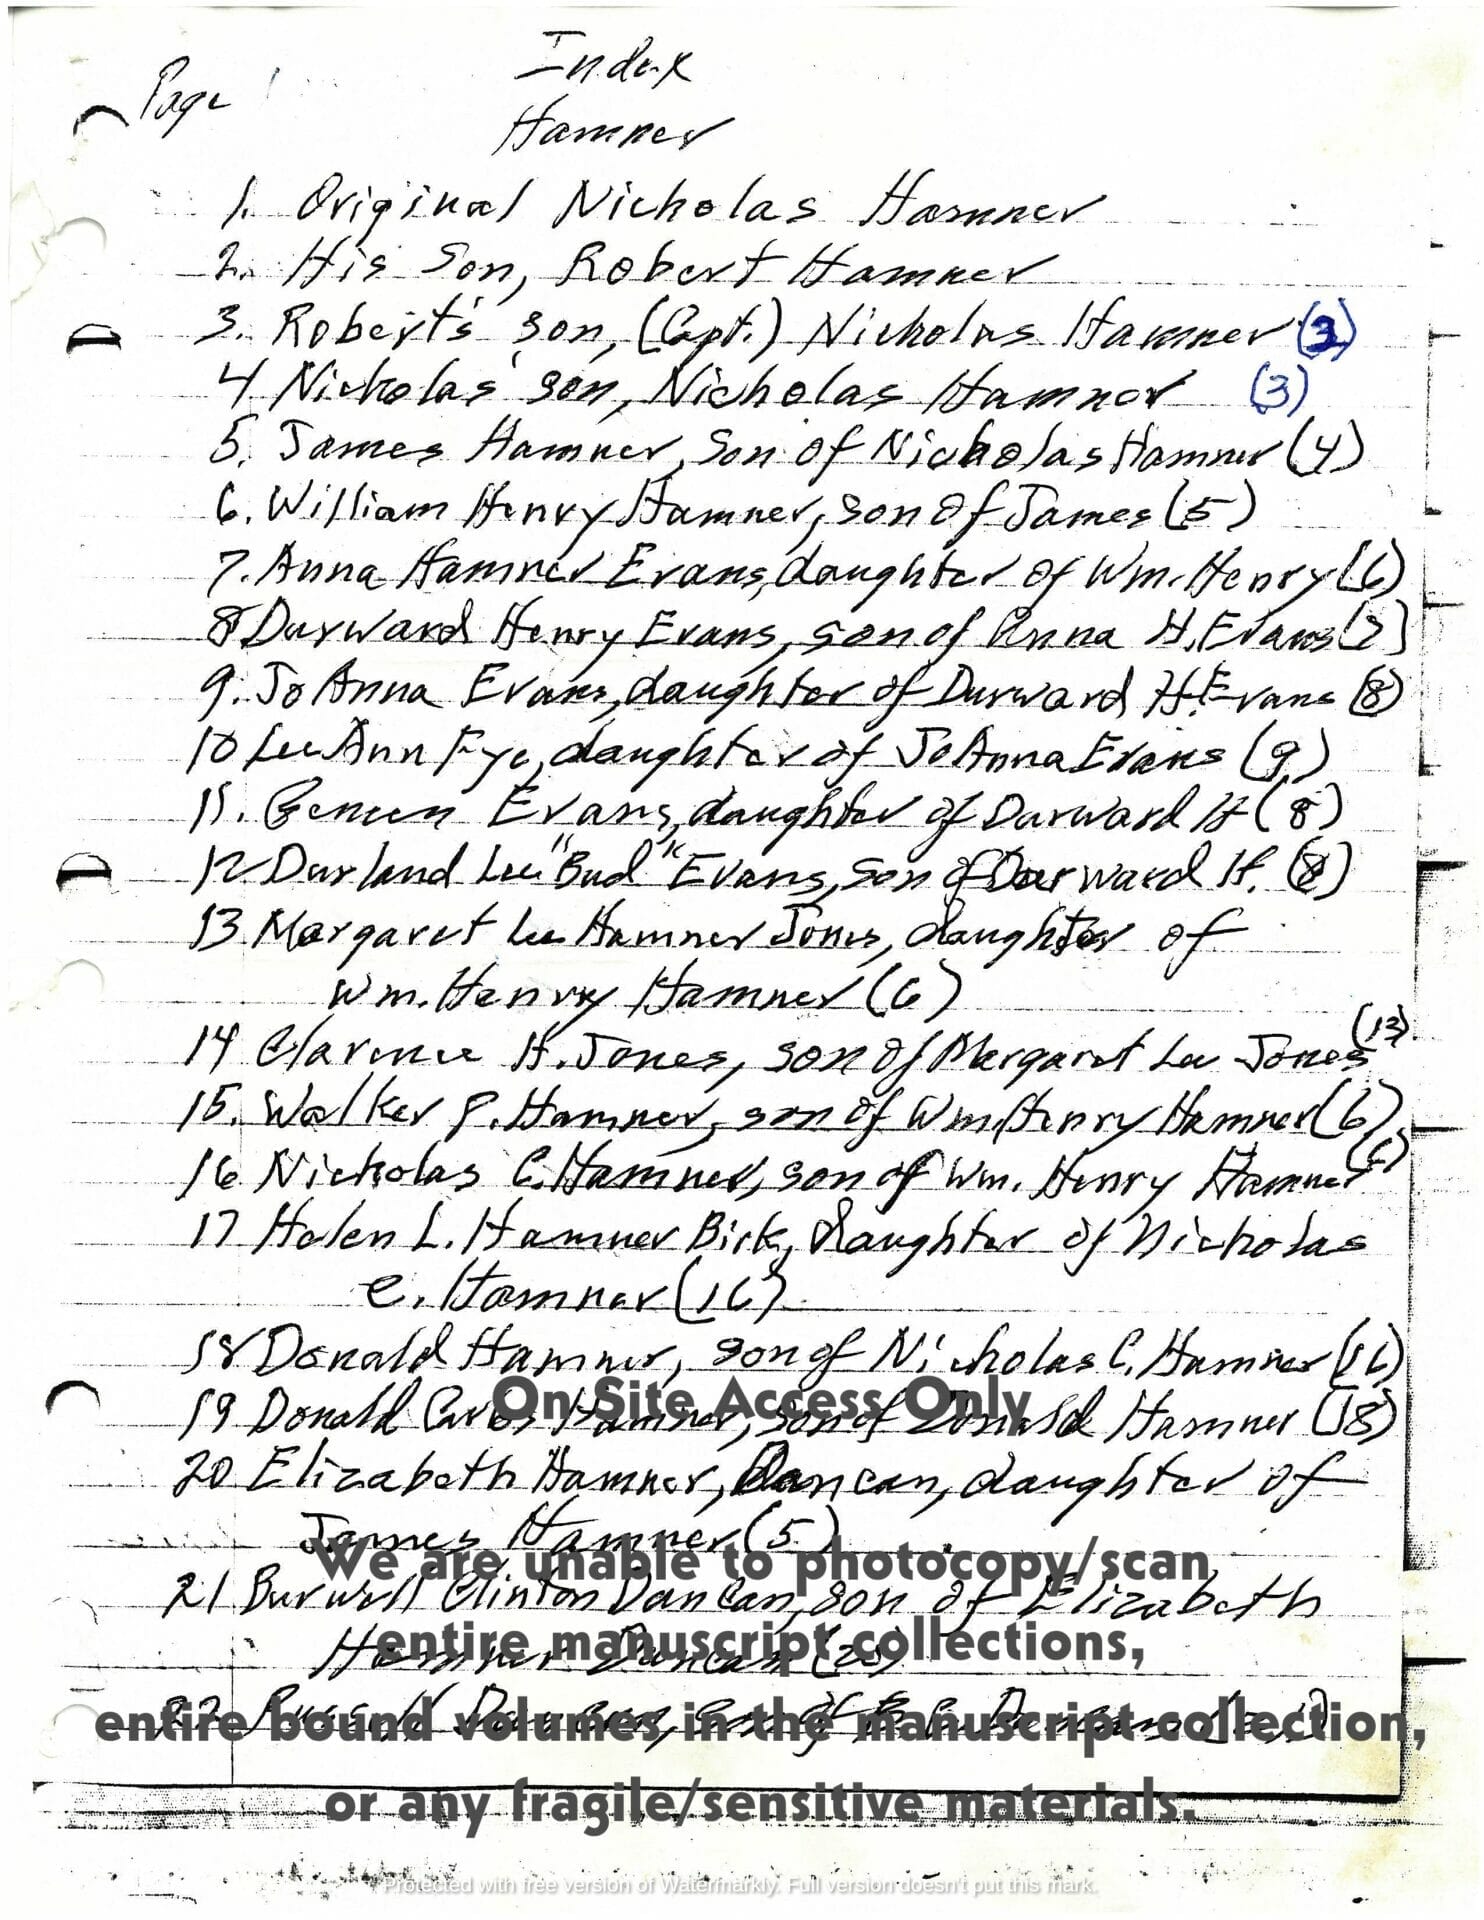 Index
Page
Hamner
1. Original Nicholas Hamner
2. His Son, Robert Hamner
3. Robert's son, (Capt.) Nicholas Hamner (3)
4 Nicholas' son, Nicholas Hamner (3)
5. James Hamner, Son of Nicholas Hamner (4)
6. William Henry Hamner, son of James (5)
7. Anna Hamner Evans, daughter of Wm. Henry (6)
8 Durward Henry Evans, son of Anna H. Evans (7)
9. JoAnna Evans, daughter of Durward H. Evans (8)
10 Lee Ann Fye, daughter of JoAnna Evans (9)
11. Evans, daughter of Durward H (8)
12 Durland Lee "Bud" Evans, son of Durward H. (8)
13 Margaret Lee Hamner Jones, daughter of
Wm. Henry Hamner (6)
14 Clarence H. Jones, son of Margaret Lee Jones (13)
15. Walker P. Hamner, son of Wm Henry Hamner (6)
16 Nicholas C. Hamner, son of Wm. Henry Hamner (6)
17 Helen L. Hamner Birk, daughter of Nicholas
C. Hamner (16)
18 Donald Hamner, son of Nicholas C. Hamner (16)
On Site Access Only
19 Donald Carlos Hamner, son of Donald Hamner (18)
20 Elizabeth Hamner, Duncan, daughter of
James Hamner (5)
We are unable to photocopy/scan
21 Burwell Clinton Duncan, son of Elizabeth
Hamner Duncan (20)
entire manuscript collections,
22 Russell Duncan, son of B. C. Duncan (21)
entire bound volumes in the manuscript collection,
or any fragile/sensitive materials.
Protected with free version of Watermarkly. Full version doesn't put this mark.